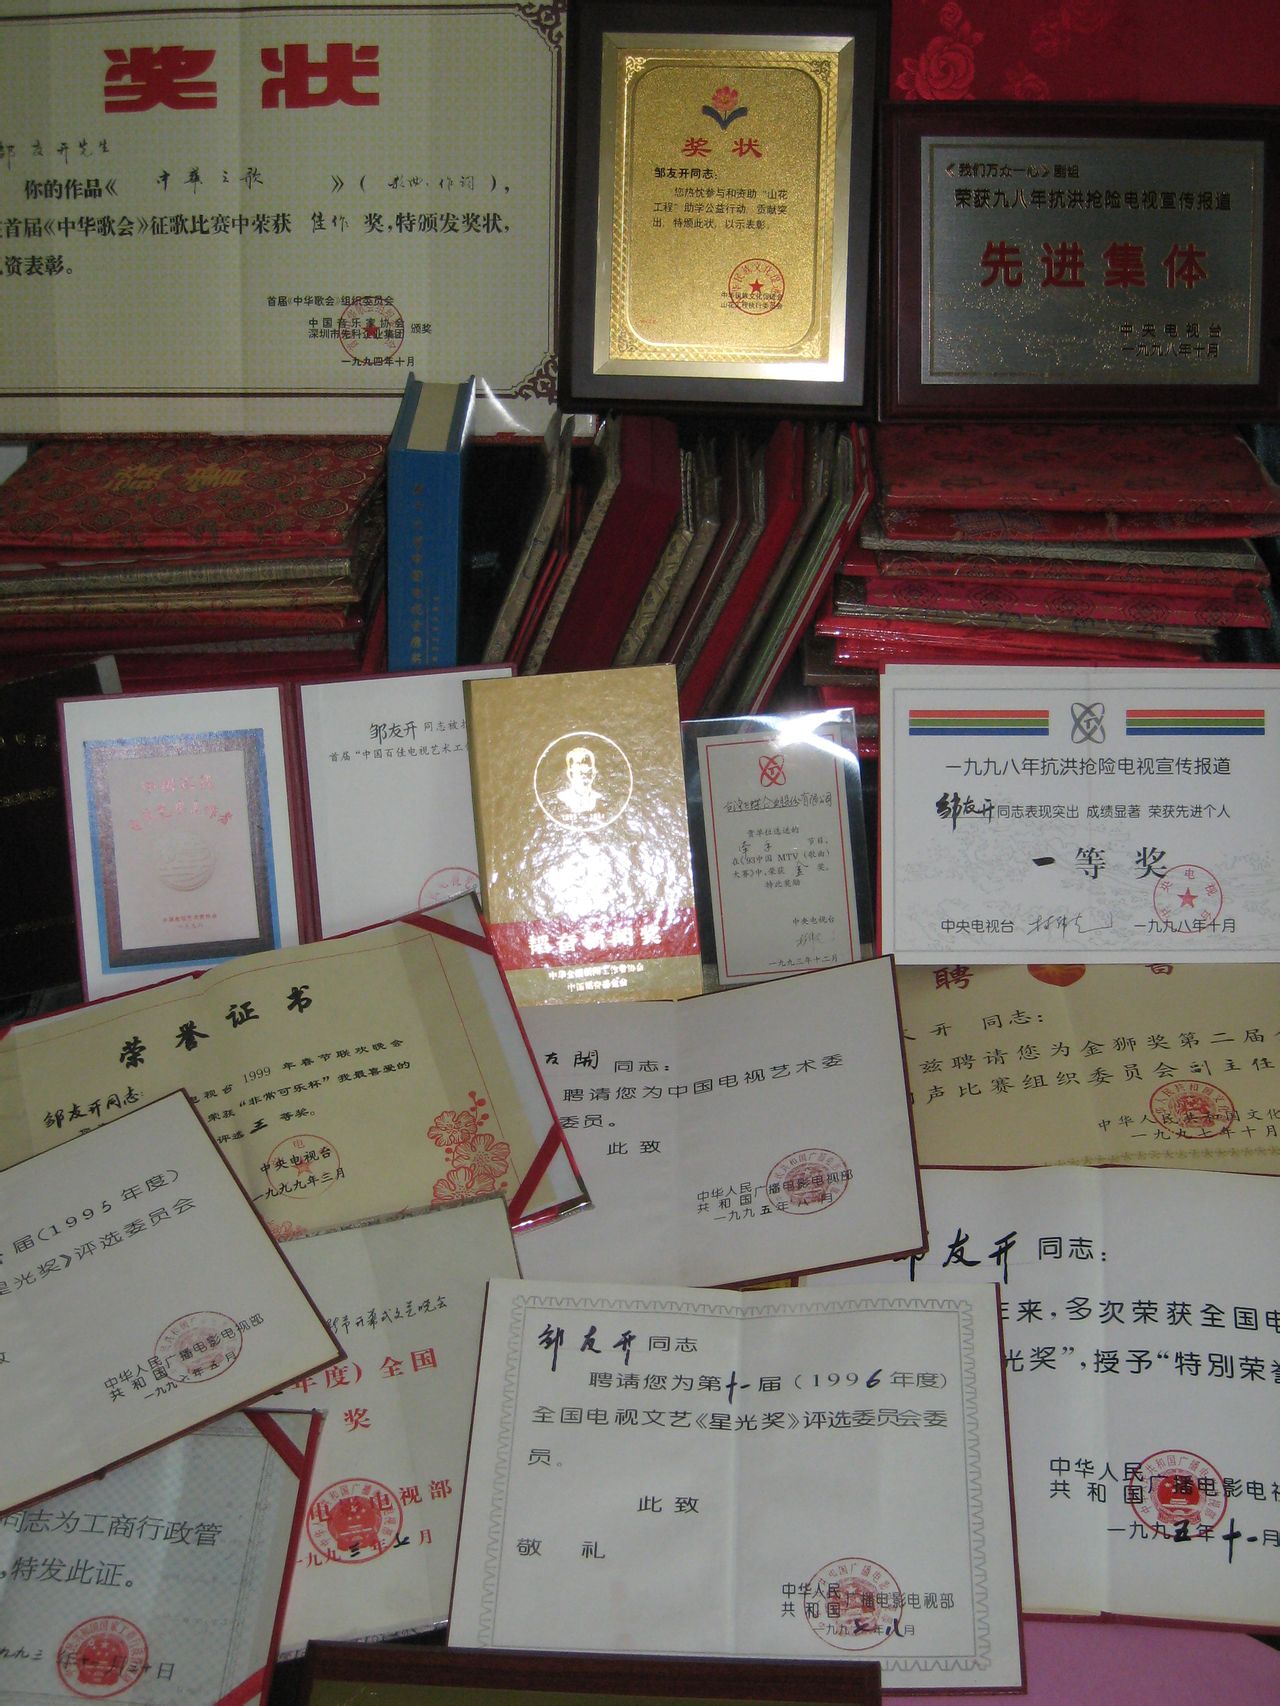 奖状
邹友开先生
你的作品《中华之歌》(歌曲、作词),
在首届《中华歌会》征歌比赛中荣获 佳作 奖,特颁发奖状,
资表彰。
首届《中华歌会》组织委员会
中国音乐家协会
深圳市先科企业集团 颁奖
一九九四年十月
奖状
邹友开同志:
您热忱参与和资助“山花
工程”助学公益行动,贡献突
出,特颁此状,以示表彰。
中华民族文化促进会
山花工程执行委员会
《我们万众一心》剧组
荣获九八年抗洪抢险电视宣传报道
先进集体
中央电视台
一九九八年十月
邹友开同志被
首届“中国百佳电视艺术工
韬奋新闻奖
中华全国新闻工作者协会
贵单位选送的
牵手 节目,
在《'93中国MTV(歌曲)
大赛》中,荣获 金 奖。
特此奖励
中央电视台
一九九三年十二月
一九九八年抗洪抢险电视宣传报道
邹友开同志表现突出 成绩显著 荣获先进个人
一等奖
中央电视台
一九九八年十月
荣誉证书
邹友开同志:
电视台1999年春节联欢晚会
荣获“非常可乐杯”我最喜爱的
评选 等奖。
中央电视台
一九九九年三月
友開 同志:
聘请您为中国电视艺术委
委员。
此致
中华人民
共和国 广播电影电视部
一九九五年八月
聘
友开 同志:
兹聘请您为金狮奖第二届
声比赛组织委员会副主任
中华人民共和国文化
一九九七年十月
届(1995年度)
星光奖》评选委员会
中华人民
共和国 广播电影电视部
一九九六年五月
节开幕式文艺晚会
年度)全国
奖
电影电视部
一九九三年六月
邹友开同志
聘请您为第十一届(1996年度)
全国电视文艺《星光奖》评选委员会委
员。
此致
敬礼
中华人民
共和国 广播电影电视部
一九九七年八月
邹友开 同志:
年来,多次荣获全国电
光奖”,授予“特别荣誉
中华人民
共和国 广播电影电视
一九九五年十一月
同志为工商行政管
,特发此证。
九九三年十一月三十日